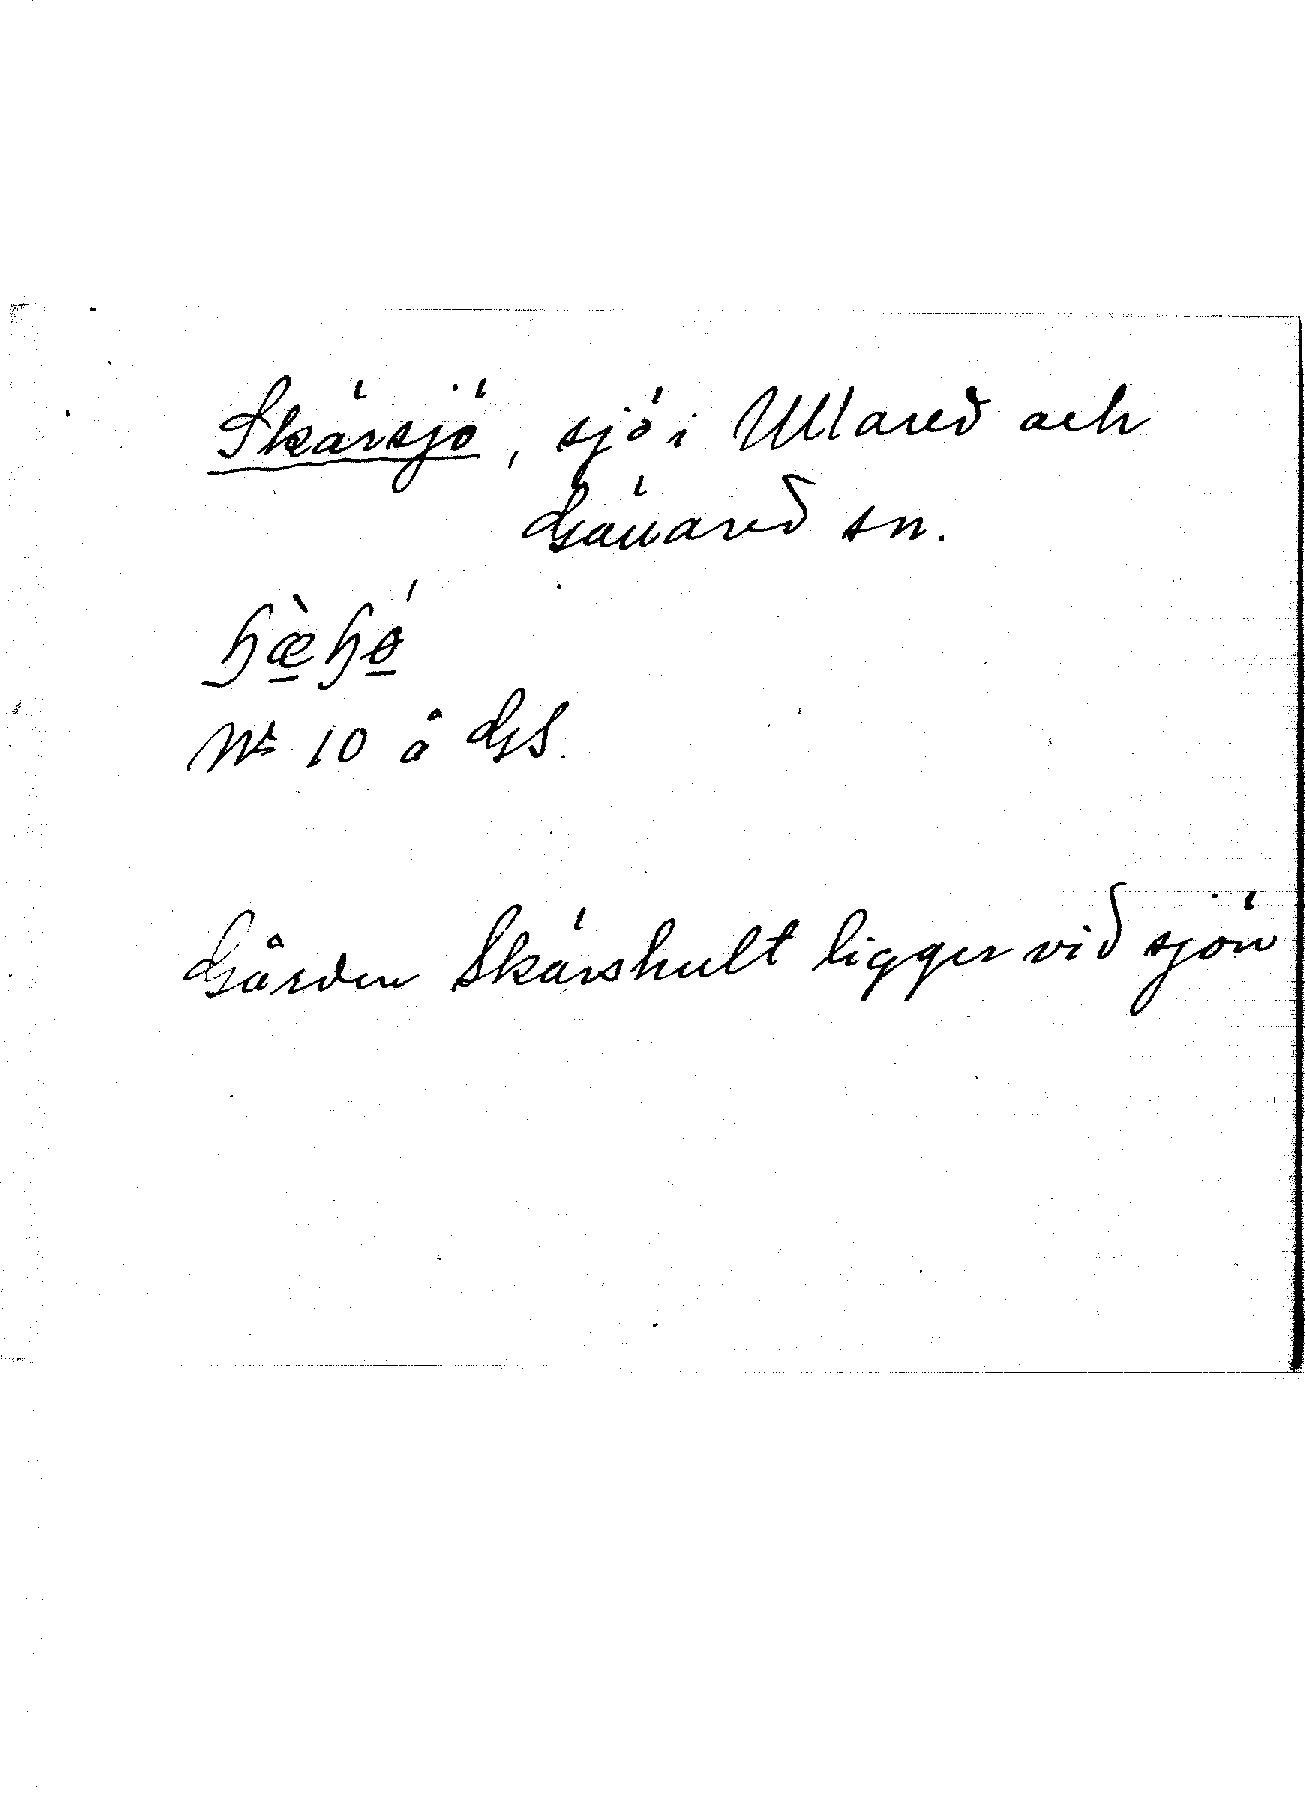 Skärsjö, sjö i Ullared och
Gällared sn.
ɧæ̀ɧǿ
Nr 10 å GS.
Gården Skärshult ligger vid sjön